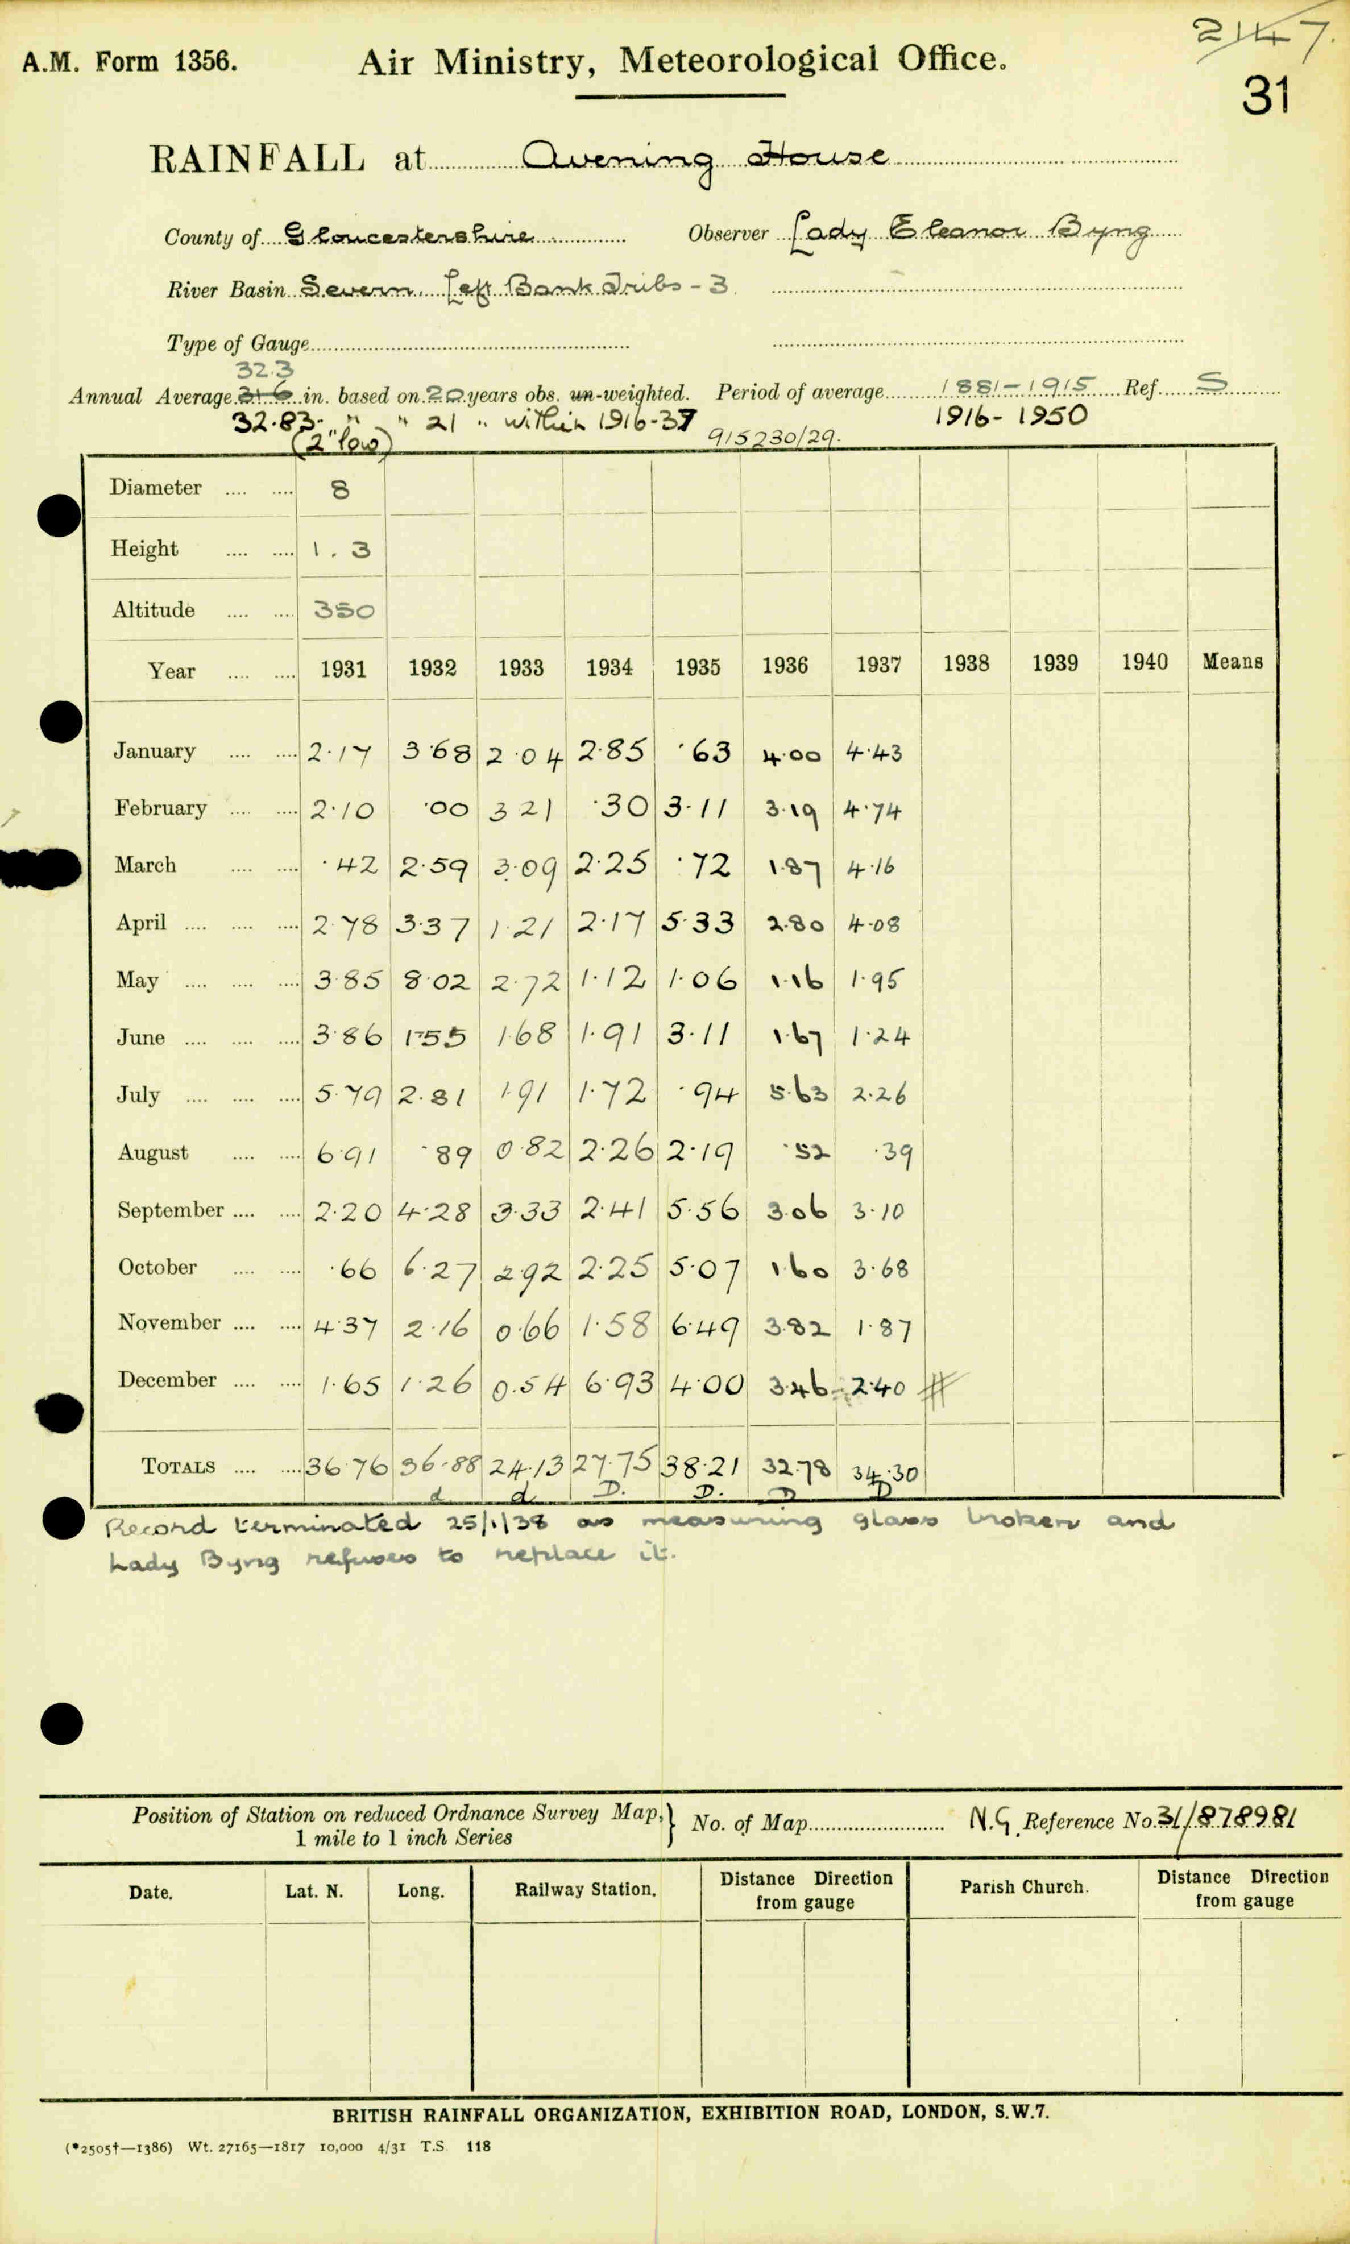 2147.
A.M. Form 1356. Air Ministry, Meteorological Office.
31
RAINFALL at Avening House
County of Gloucestershire Observer Lady Eleanor Byng
River Basin Severn. Left Bank Tribs - 3
Type of Gauge
32.3
Annual Average 31.6 in. based on 20 years obs. un-weighted. Period of average 1881-1915 Ref. S
32.83 " " 21 " within 1916-37 1916-1950
(2" low) 915230/29.
Diameter 8
Height 1.3
Altitude 350
Year 1931 1932 1933 1934 1935 1936 1937 1938 1939 1940 Means
January 2.17 3.68 2.04 2.85 .63 4.00 4.43
February 2.10 .00 3.21 .30 3.11 3.19 4.74
March .42 2.59 3.09 2.25 .72 1.87 4.16
April 2.78 3.37 1.21 2.17 5.33 2.80 4.08
May 3.85 8.02 2.72 1.12 1.06 1.16 1.95
June 3.86 1.55 1.68 1.91 3.11 1.67 1.24
July 5.79 2.81 1.91 1.72 .94 5.63 2.26
August 6.91 .89 0.82 2.26 2.19 .52 .39
September 2.20 4.28 3.33 2.41 5.56 3.06 3.10
October .66 6.27 2.92 2.25 5.07 1.60 3.68
November 4.37 2.16 0.66 1.58 6.49 3.82 1.87
December 1.65 1.26 0.54 6.93 4.00 3.46 2.40 #
TOTALS 36.76 36.88 24.13 27.75 38.21 32.78 34.30
d d D. D. D D
Record terminated 25/1/38 as measuring glass broken and
Lady Byng refuses to replace it.
Position of Station on reduced Ordnance Survey Map, } No. of Map N.G. Reference No. 31/878981
1 mile to 1 inch Series
Date. Lat. N. Long. Railway Station. Distance Direction from gauge Parish Church. Distance Direction from gauge
BRITISH RAINFALL ORGANIZATION, EXHIBITION ROAD, LONDON, S.W.7.
(*2505†—1386) Wt. 27165—1817 10,000 4/31 T.S. 118